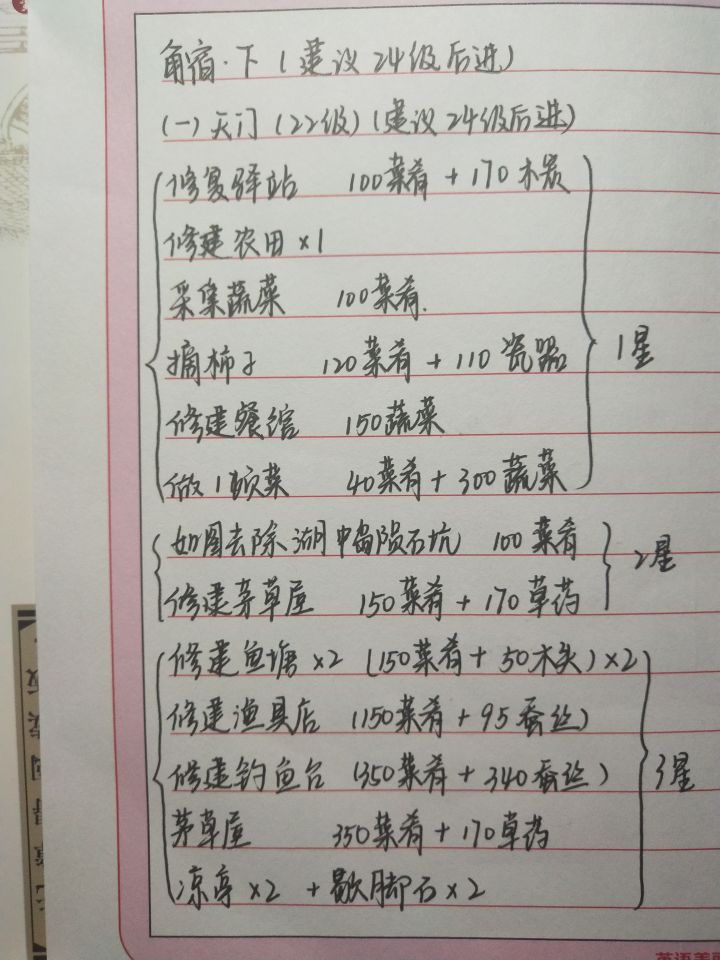 角宿·下（建议24级后进）
（一）天门（22级）（建议24级后进）
修复驿站 100菜肴+170木炭
修建农田×1
采集蔬菜 100菜肴.
摘柿子 120菜肴+110瓷器
1星
修建餐馆 150蔬菜
做1顿菜 40菜肴+300蔬菜
如图去除湖中岛陨石坑 100菜肴
2星
修建茅草屋 150菜肴+170草药
修建鱼塘×2 （150菜肴+50木头）×2
修建渔具店 （150菜肴+95蚕丝）
修建钓鱼台 （350菜肴+340蚕丝）
3星
茅草屋 350菜肴+170草药
凉亭×2 +歇脚石×2